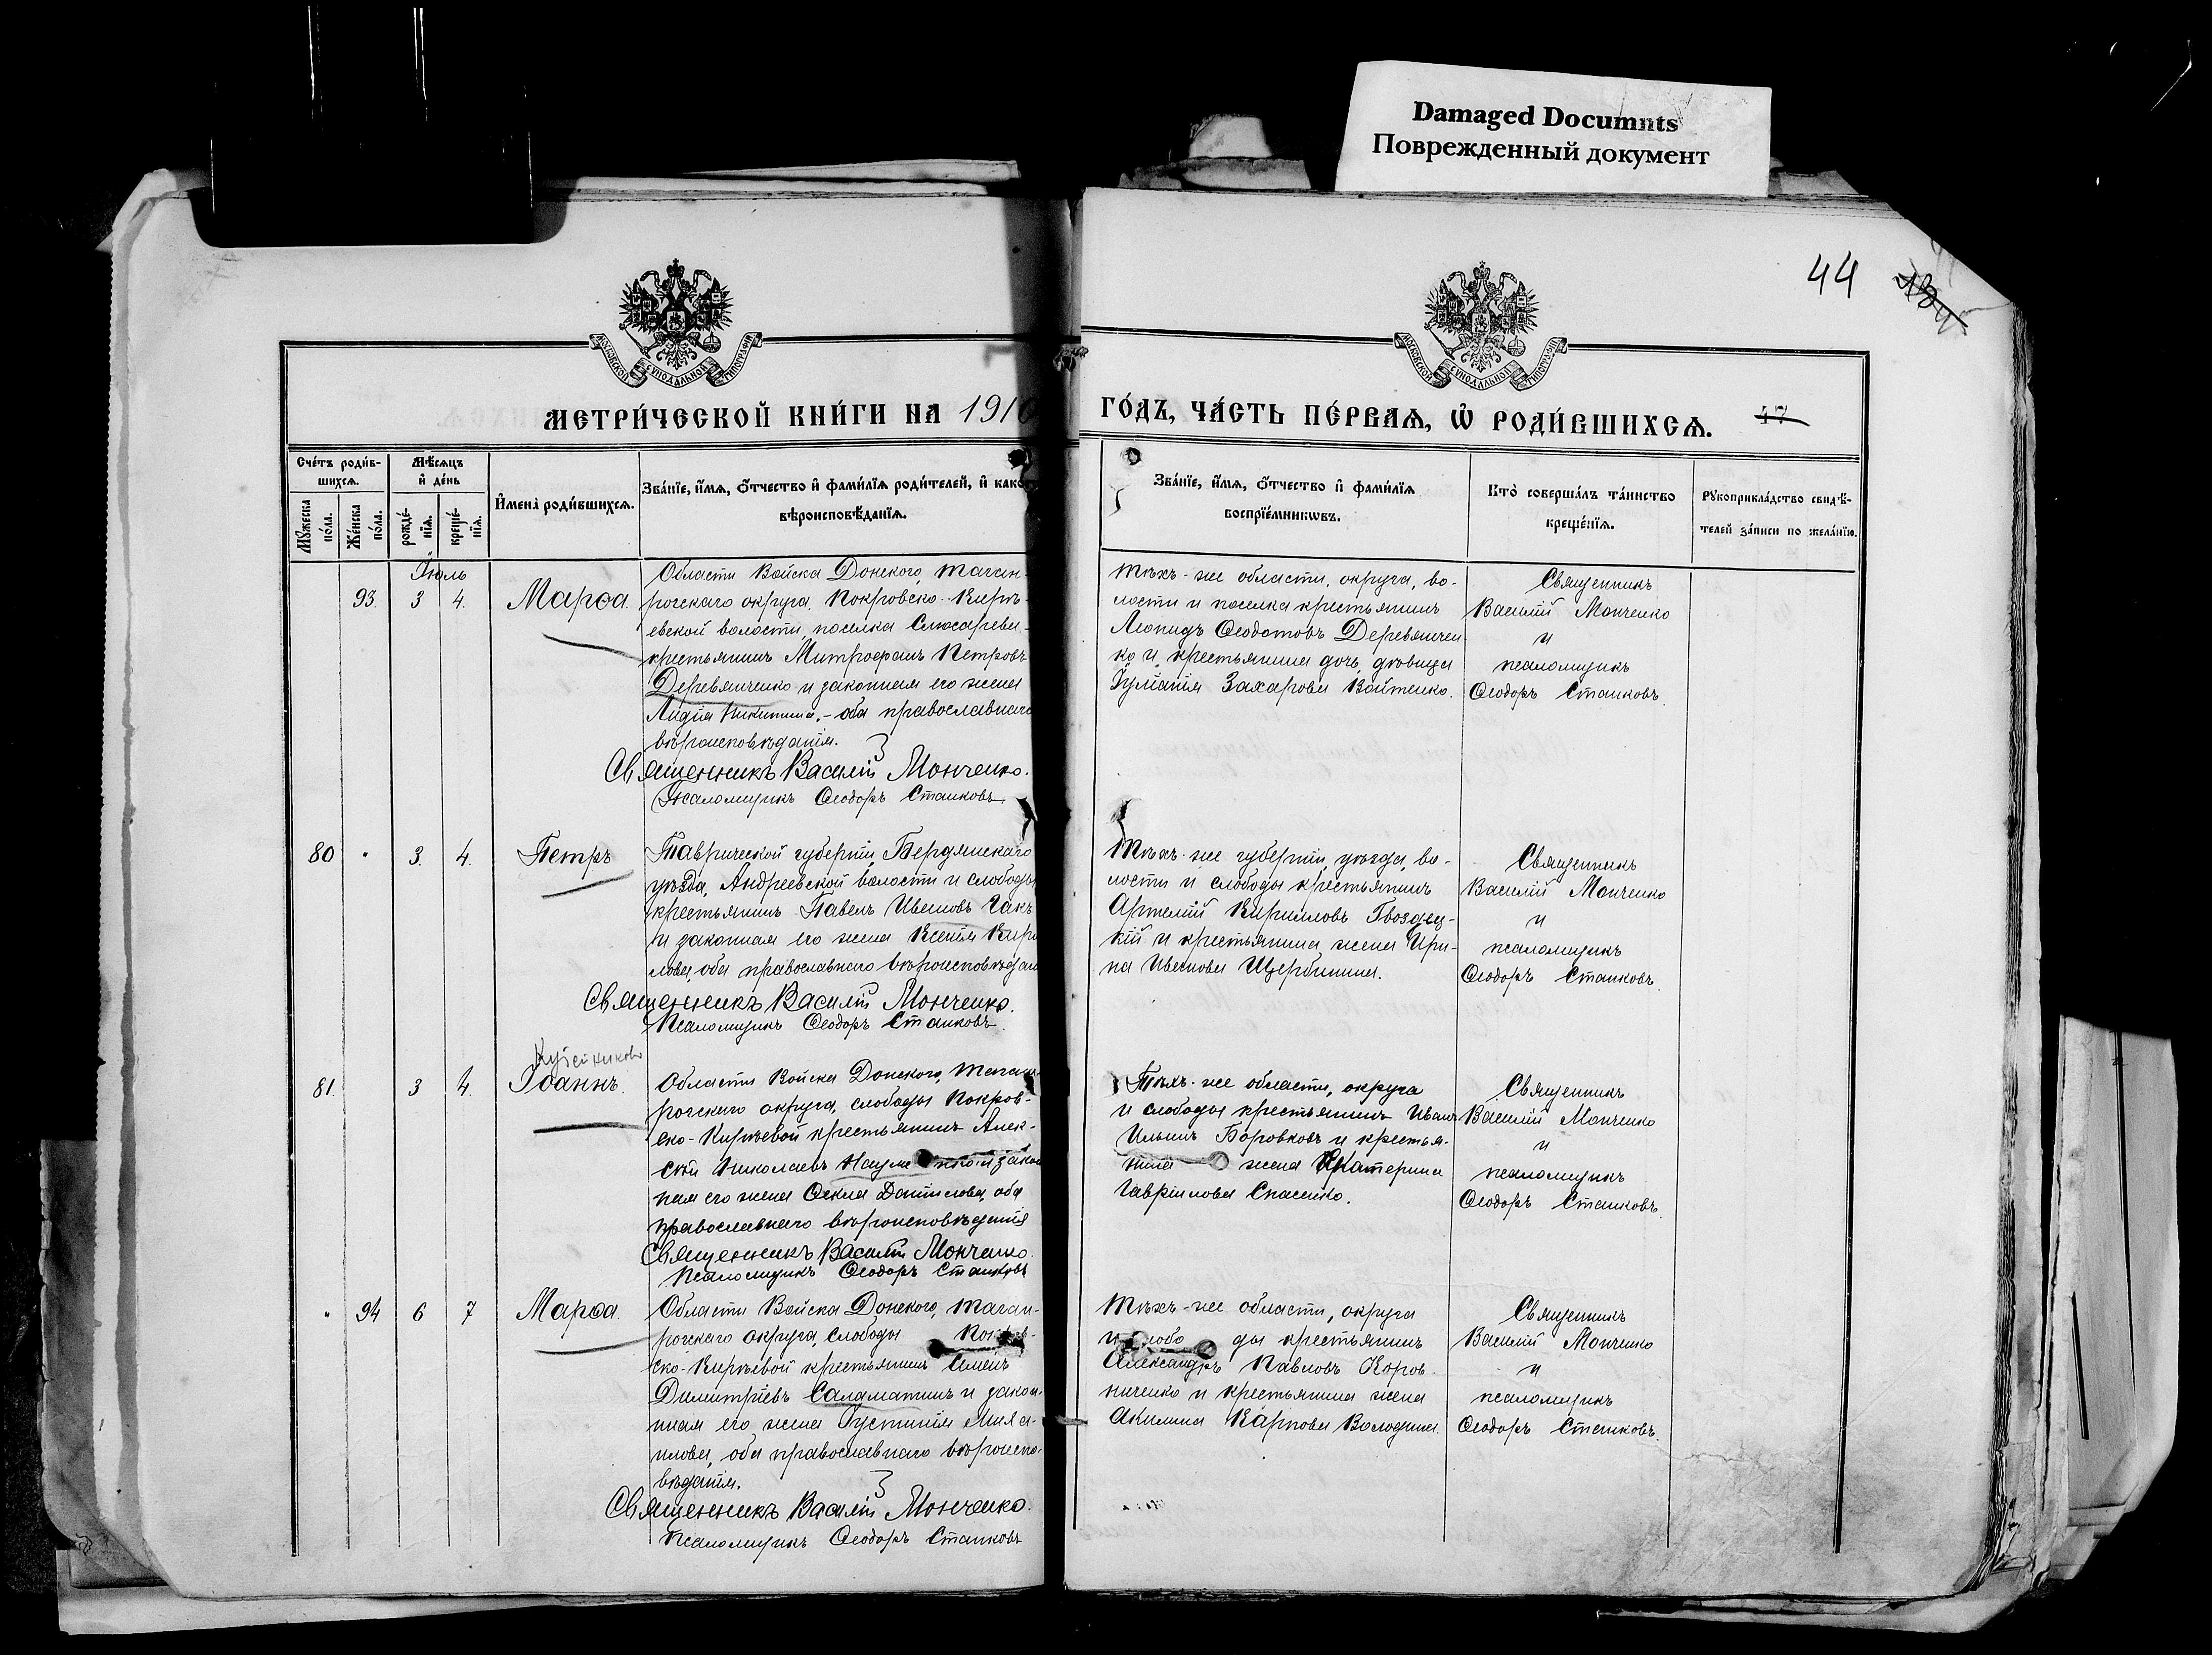 Damaged Documnts
Поврежденный документ
44
МОСКОВСКОЙ СѴНОДАЛЬНОЙ ТИПОГРАФІИ
МОСКОВСКОЙ СѴНОДАЛЬНОЙ ТИПОГРАФІИ
МЕТРИ́ЧЕСКОЙ КНИ́ГИ НА 1910
ГО́ДЪ, ЧА́СТЬ ПЕ́РВАѦ, Ѡ҆ РОДИ́ВШИХСѦ. 47
Сче́тъ роди́в-
шихсѧ.
Мѣ́сѧцъ
и҆ де́нь
Мꙋ́жеска
по́ла.
Же́нска
по́ла.
рожде́-
нїѧ.
креще́-
нїѧ.
И҆мена̀ роди́вшихсѧ.
Зва́нїе, и҆́мѧ, ѻ҆́тчество и҆ фами́лїѧ роди́телей, и҆ како́
вѣроисповѣ́данїѧ.
Зва́нїе, и҆́мѧ, ѻ҆́тчество и҆ фами́лїѧ
воспрїе́мникѡвъ.
Кто̀ соверша́лъ та́инство
креще́нїѧ.
Рꙋкоприкла́дство свидѣ́-
телей за́писи по жела́нїю.
Іюль
93. 3 4. Марѳа.
Области Войска Донского, Таган-
рогскаго округа, Покровско-Кирѣ-
евской волости, поселка Слюсарева
крестьянинъ Митрофанъ Петровъ
Деревянченко и законная его жена
Лидія Никитина, - оба православнаго
вѣроисповѣданія.
Священникъ Василій Монченко.
Псаломщикъ Ѳеодоръ Станковъ
Тѣхъ-же области, округа, во-
лости и поселка крестьянинъ
Леонидъ Ѳеодотовъ Деревянчен
ко и крестьянина дочь, дѣвица
Іуліанія Захарова Войтенко.
Священникъ
Василій Монченко
и
псаломщикъ
Ѳеодоръ Станковъ.
80 " 3. 4. Петръ
Таврической губерніи, Бердянскаго
уѣзда, Андреевской волости и слободы
крестьянинъ Павелъ Ивановъ Гакъ
и законная его жена Ксенія Кири
лова, оба православнаго вѣроисповѣдан
Священникъ Василій Монченко.
Псаломщикъ Ѳеодоръ Станковъ.
Тѣхъ-же губерніи, уѣзда, во-
лости и слободы крестьянинъ
Артемій Кирилловъ Гвоздец-
кій и крестьянина жена Ири-
на Иванова Щербинина.
Священникъ
Василій Монченко
и
псаломщикъ
Ѳеодоръ Станковъ.
81. 3 4. Іоаннъ.
Области Войска Донского, Таган
рогскаго округа, слободы Покров-
ско-Кирѣевой крестьянинъ Алек-
сѣй Николаевъ Науме нко и закон
ная его жена Ѳекла Данилова, оба
православнаго вѣроисповѣданія
Священникъ Василій Монченко.
Псаломщикъ Ѳеодоръ Станковъ
Тѣхъ-же области, округа
и слободы крестьянинъ Иванъ
Ильинъ Боровковъ и крестья-
нина жена Екатерина
Гавріилова Спасенко.
Священникъ
Василій Монченко
и
псаломщикъ
Ѳеодоръ Станковъ.
" 94 6 7 Марѳа.
Области Войска Донского, Таган-
рогскаго округа, слободы Покров-
ско-Кирѣевой крестьянинъ Семенъ
Димитріевъ Саламатинъ и закон-
ная его жена Іустинія
илова, оба православнаго вѣроиспо-
вѣданія.
Священникъ Василій Монченко.
Псаломщикъ Ѳеодоръ Станковъ
Тѣхъ-же области, округа
и слобо ды крестьянинъ
Александръ Павловъ Коров
ниченко и крестьянина жена
Акилина Карпова Володина.
Священникъ
Василій Монченко
и
псаломщикъ
Ѳеодоръ Станковъ.